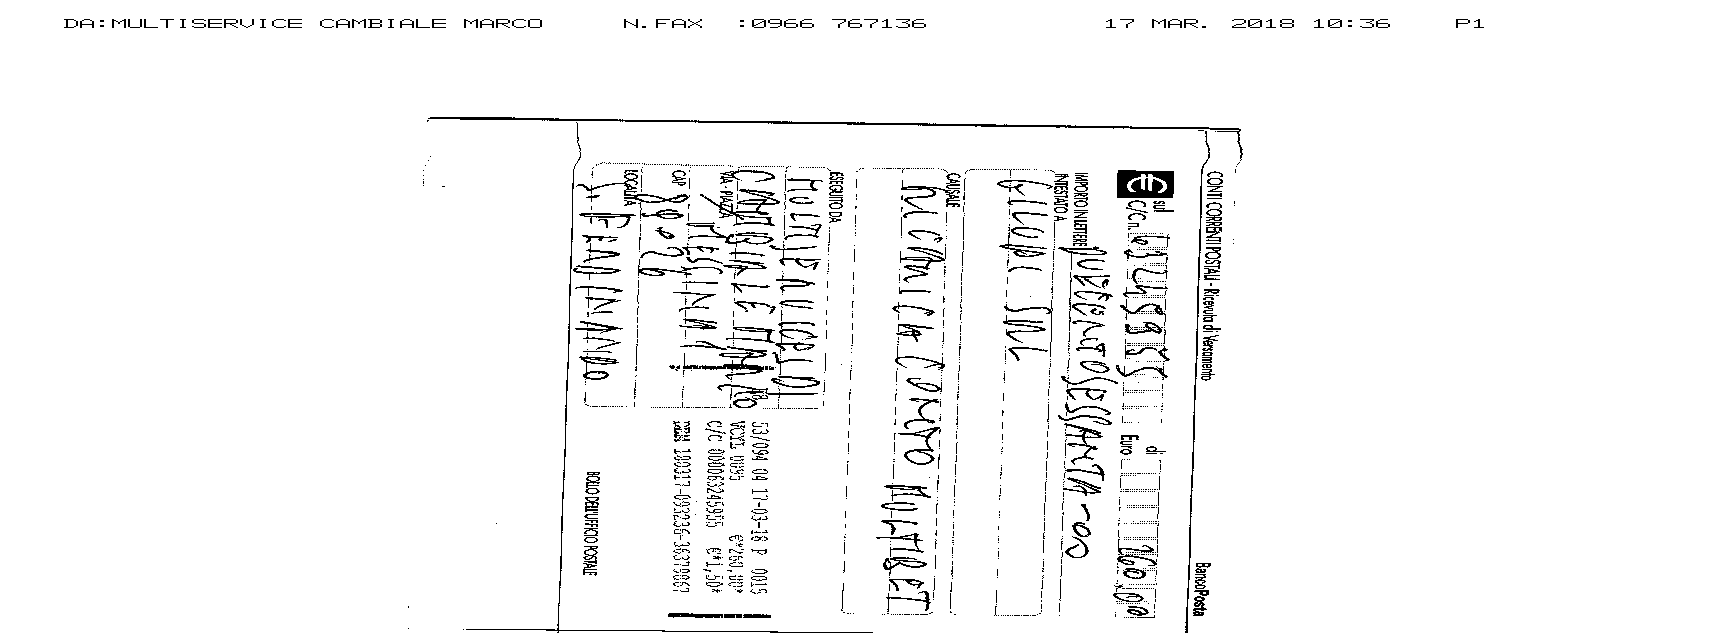 DA:MULTISERVICE CAMBIALE MARCO N.FAX :0966 767136 17 MAR. 2018 10:36 P1
CONTI CORRENTI POSTALI - Ricevuta di Versamento BancoPosta
sul C/C n. 63245955 di Euro 260,00
IMPORTO IN LETTERE DUECENTOSESSANTA-00
INTESTATO A
SRL
CAUSALE
RICARICA CONTO MULTIBET
ESEGUITO DA
MULTISERVICE DI
CAMBIALE MARCO
VIA - PIAZZA
MESSINA 1
CAP
89026
LOCALITÀ
S. FERDINANDO
53/094 04 17-03-18 P 0015
VCYL 0095 €*260,00*
C/C 000063245955 €*1,50*
BOLLO DELL'UFFICIO POSTALE